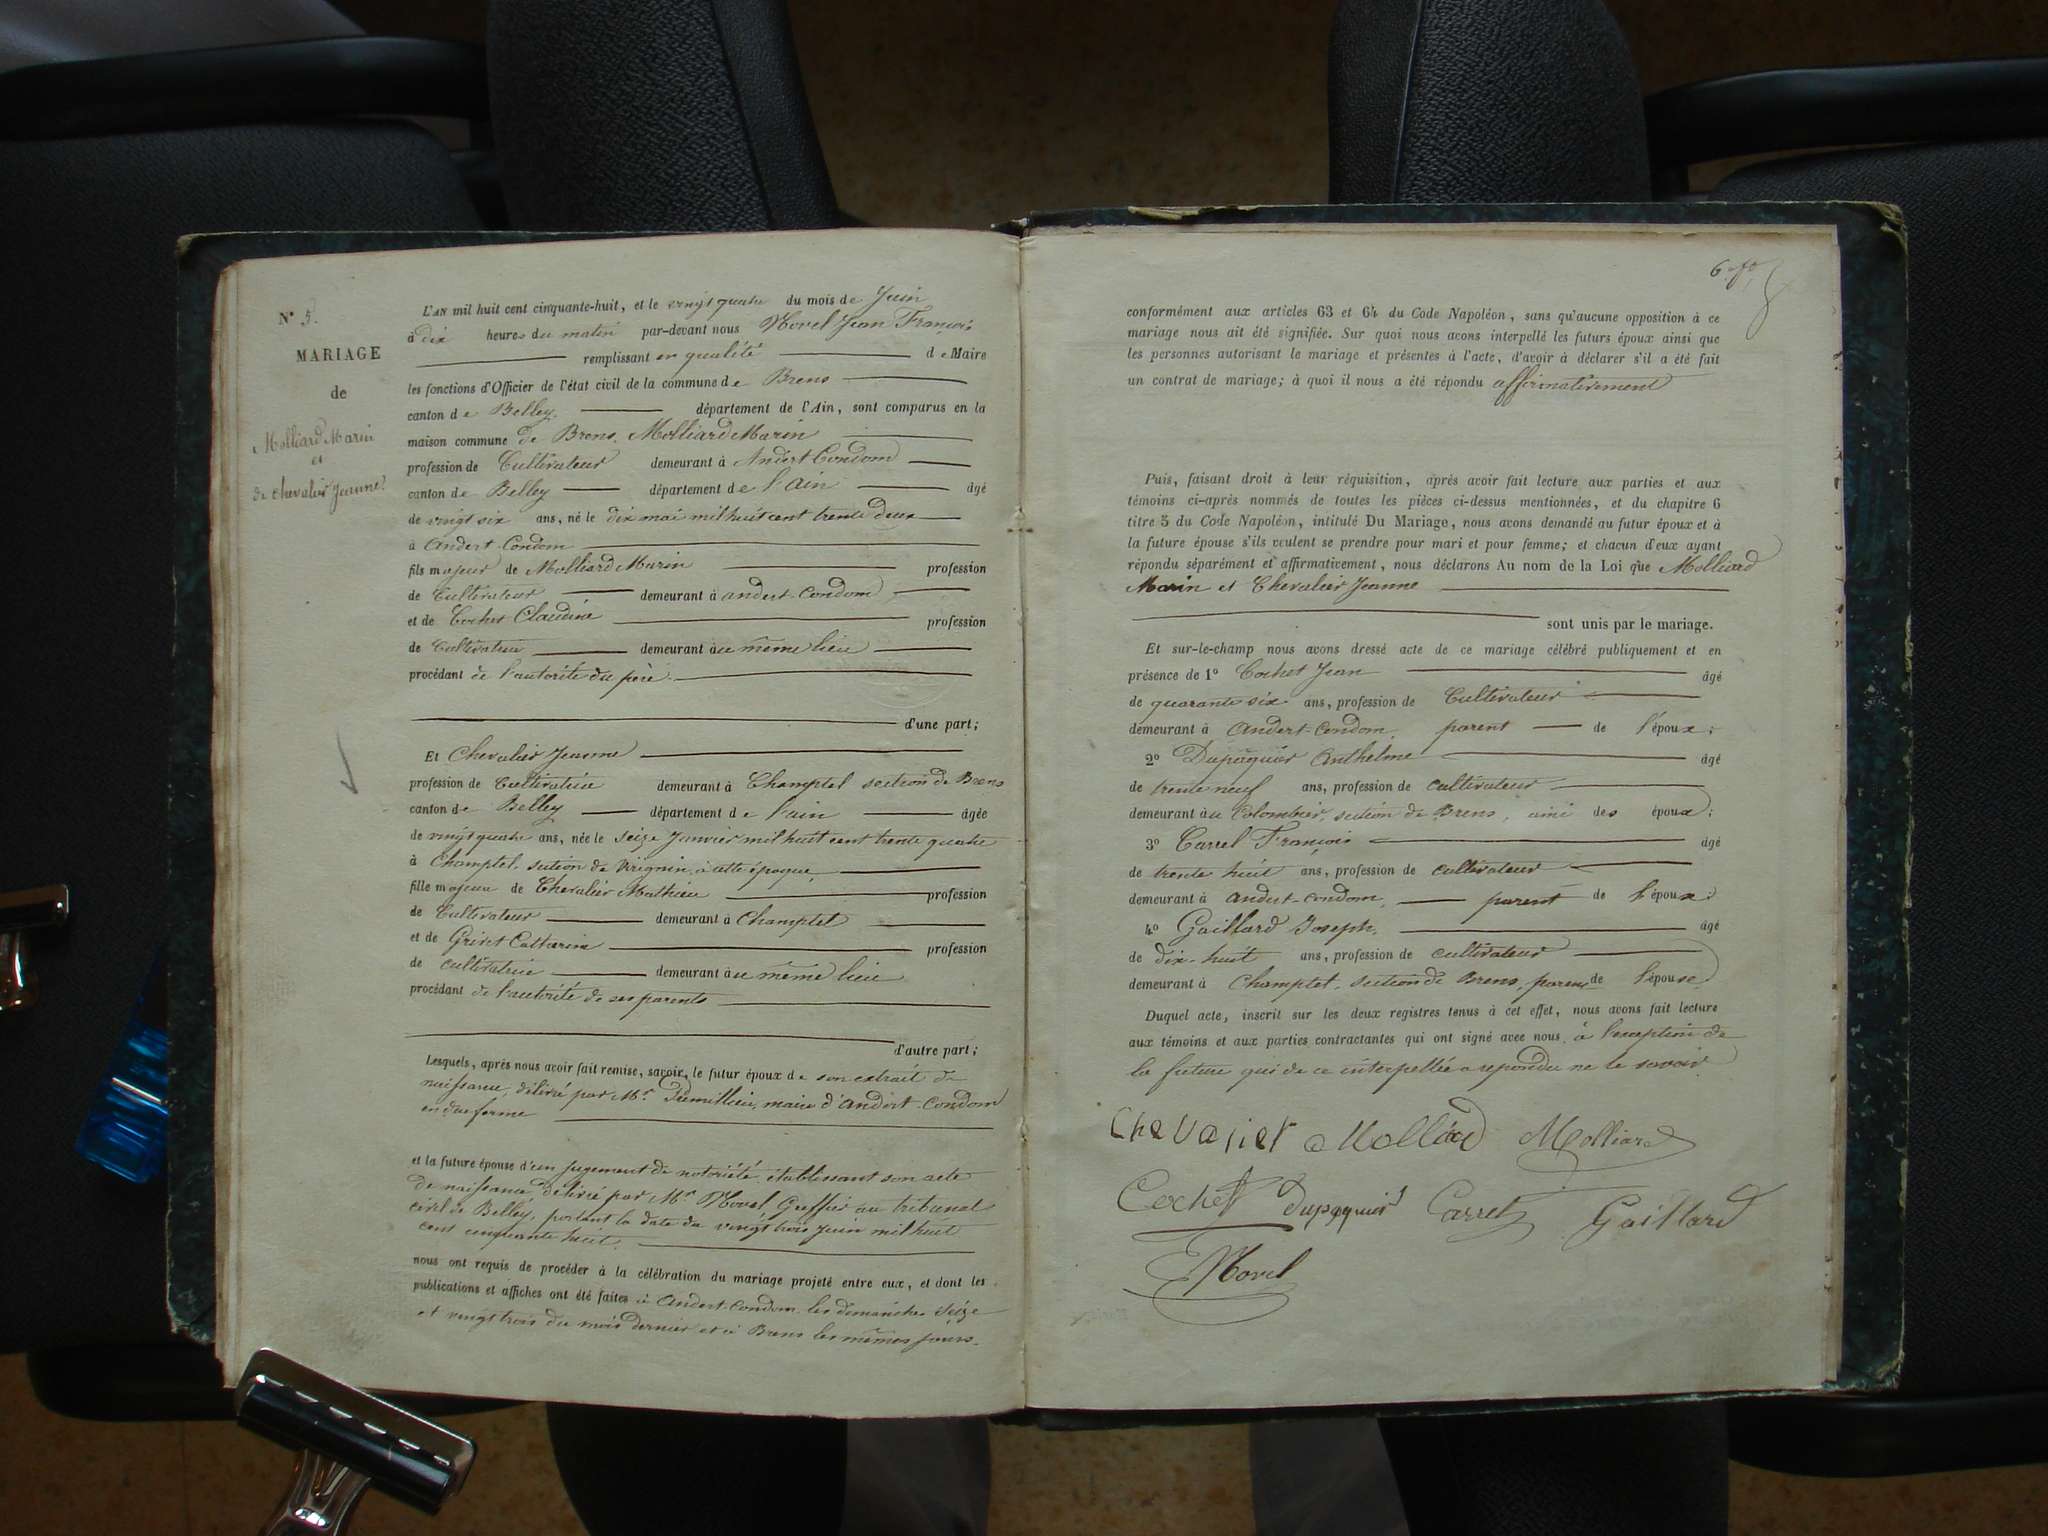 N° 5.
MARIAGE
de
Molliard Marin
et
de Chevalier Jeanne
L'AN mil huit cent cinquante-huit, et le vingt quatre du mois de Juin
à dix heures du matin par-devant nous Novel Jean François
remplissant en qualité de Maire
les fonctions d'Officier de l'état civil de la commune de Brens
canton de Belley département de l'Ain, sont comparus en la
maison commune de Brens, Molliard Marin
profession de Cultivateur demeurant à Andert-Condom
canton de Belley département de l'ain âgé
de vingt six ans, né le dix mai mil huit cent trente deux
à Andert-Condom
fils majeur de Molliard Marin profession
de Cultivateur demeurant à andert-Condom
et de Cochet Claudine profession
de Cultivatrice demeurant au même lieu
procédant de l'autorité du père
d'une part;
Et Chevalier Jeanne
profession de Cultivatrice demeurant à Champtel section de Brens
canton de Belley département de l'ain âgée
de vingt quatre ans, née le seize Janvier mil huit cent trente quatre
à Champtel, section de Virignin, à cette époque,
fille majeure de Chevalier Mathieu profession
de Cultivateur demeurant à Champtel
et de Grivet Catherine profession
de cultivatrice demeurant au même lieu
procédant de l'autorité de ses parents
d'autre part;
Lesquels, après nous avoir fait remise, savoir, le futur époux de son extrait de
naissance, délivré par Mr. maire d'Andert-Condom
en due forme
et la future épouse d'un jugement de notoriété établissant son acte
de naissance, délivré par Mr Novel Greffier au tribunal
civil de Belley, portant la date du vingt trois juin mil huit
cent cinquante huit.
nous ont requis de procéder à la célébration du mariage projeté entre eux, et dont les
publications et affiches ont été faites à Andert-Condom les dimanches seize
et vingt trois du mois dernier et à Brens les mêmes jours.
6
conformément aux articles 63 et 64 du Code Napoléon, sans qu'aucune opposition à ce
mariage nous ait été signifiée. Sur quoi nous avons interpellé les futurs époux ainsi que
les personnes autorisant le mariage et présentes à l'acte, d'avoir à déclarer s'il a été fait
un contrat de mariage; à quoi il nous a été répondu affirmativement
Puis, faisant droit à leur réquisition, après avoir fait lecture aux parties et aux
témoins ci-après nommés de toutes les pièces ci-dessus mentionnées, et du chapitre 6
titre 5 du Code Napoléon, intitulé Du Mariage, nous avons demandé au futur époux et à
la future épouse s'ils veulent se prendre pour mari et pour femme; et chacun d'eux ayant
répondu séparément et affirmativement, nous déclarons Au nom de la Loi que Molliard
Marin et Chevalier Jeanne
sont unis par le mariage.
Et sur-le-champ nous avons dressé acte de ce mariage célébré publiquement et en
présence de 1° Cochet Jean âgé
de quarante six ans, profession de Cultivateur
demeurant à Andert-Condom, parent de l'époux;
2° Dupaquier Anthelme âgé
de trente neuf ans, profession de cultivateur
demeurant au Colombier, section de Brens, ami des époux;
3° Carrel François âgé
de trente huit ans, profession de cultivateur
demeurant à andert-condom, parent de l'époux;
4° Gaillard Joseph, âgé
de dix-huit ans, profession de cultivateur
demeurant à Champtel, section de Brens, parent de l'épouse
Duquel acte, inscrit sur les deux registres tenus à cet effet, nous avons fait lecture
aux témoins et aux parties contractantes qui ont signé avec nous, à l'exception de
la future qui de ce interpellée a repondu ne le savoir
Chevalier Molliard Molliard
Cochet Dupaquier Carrel Gaillard
Novel